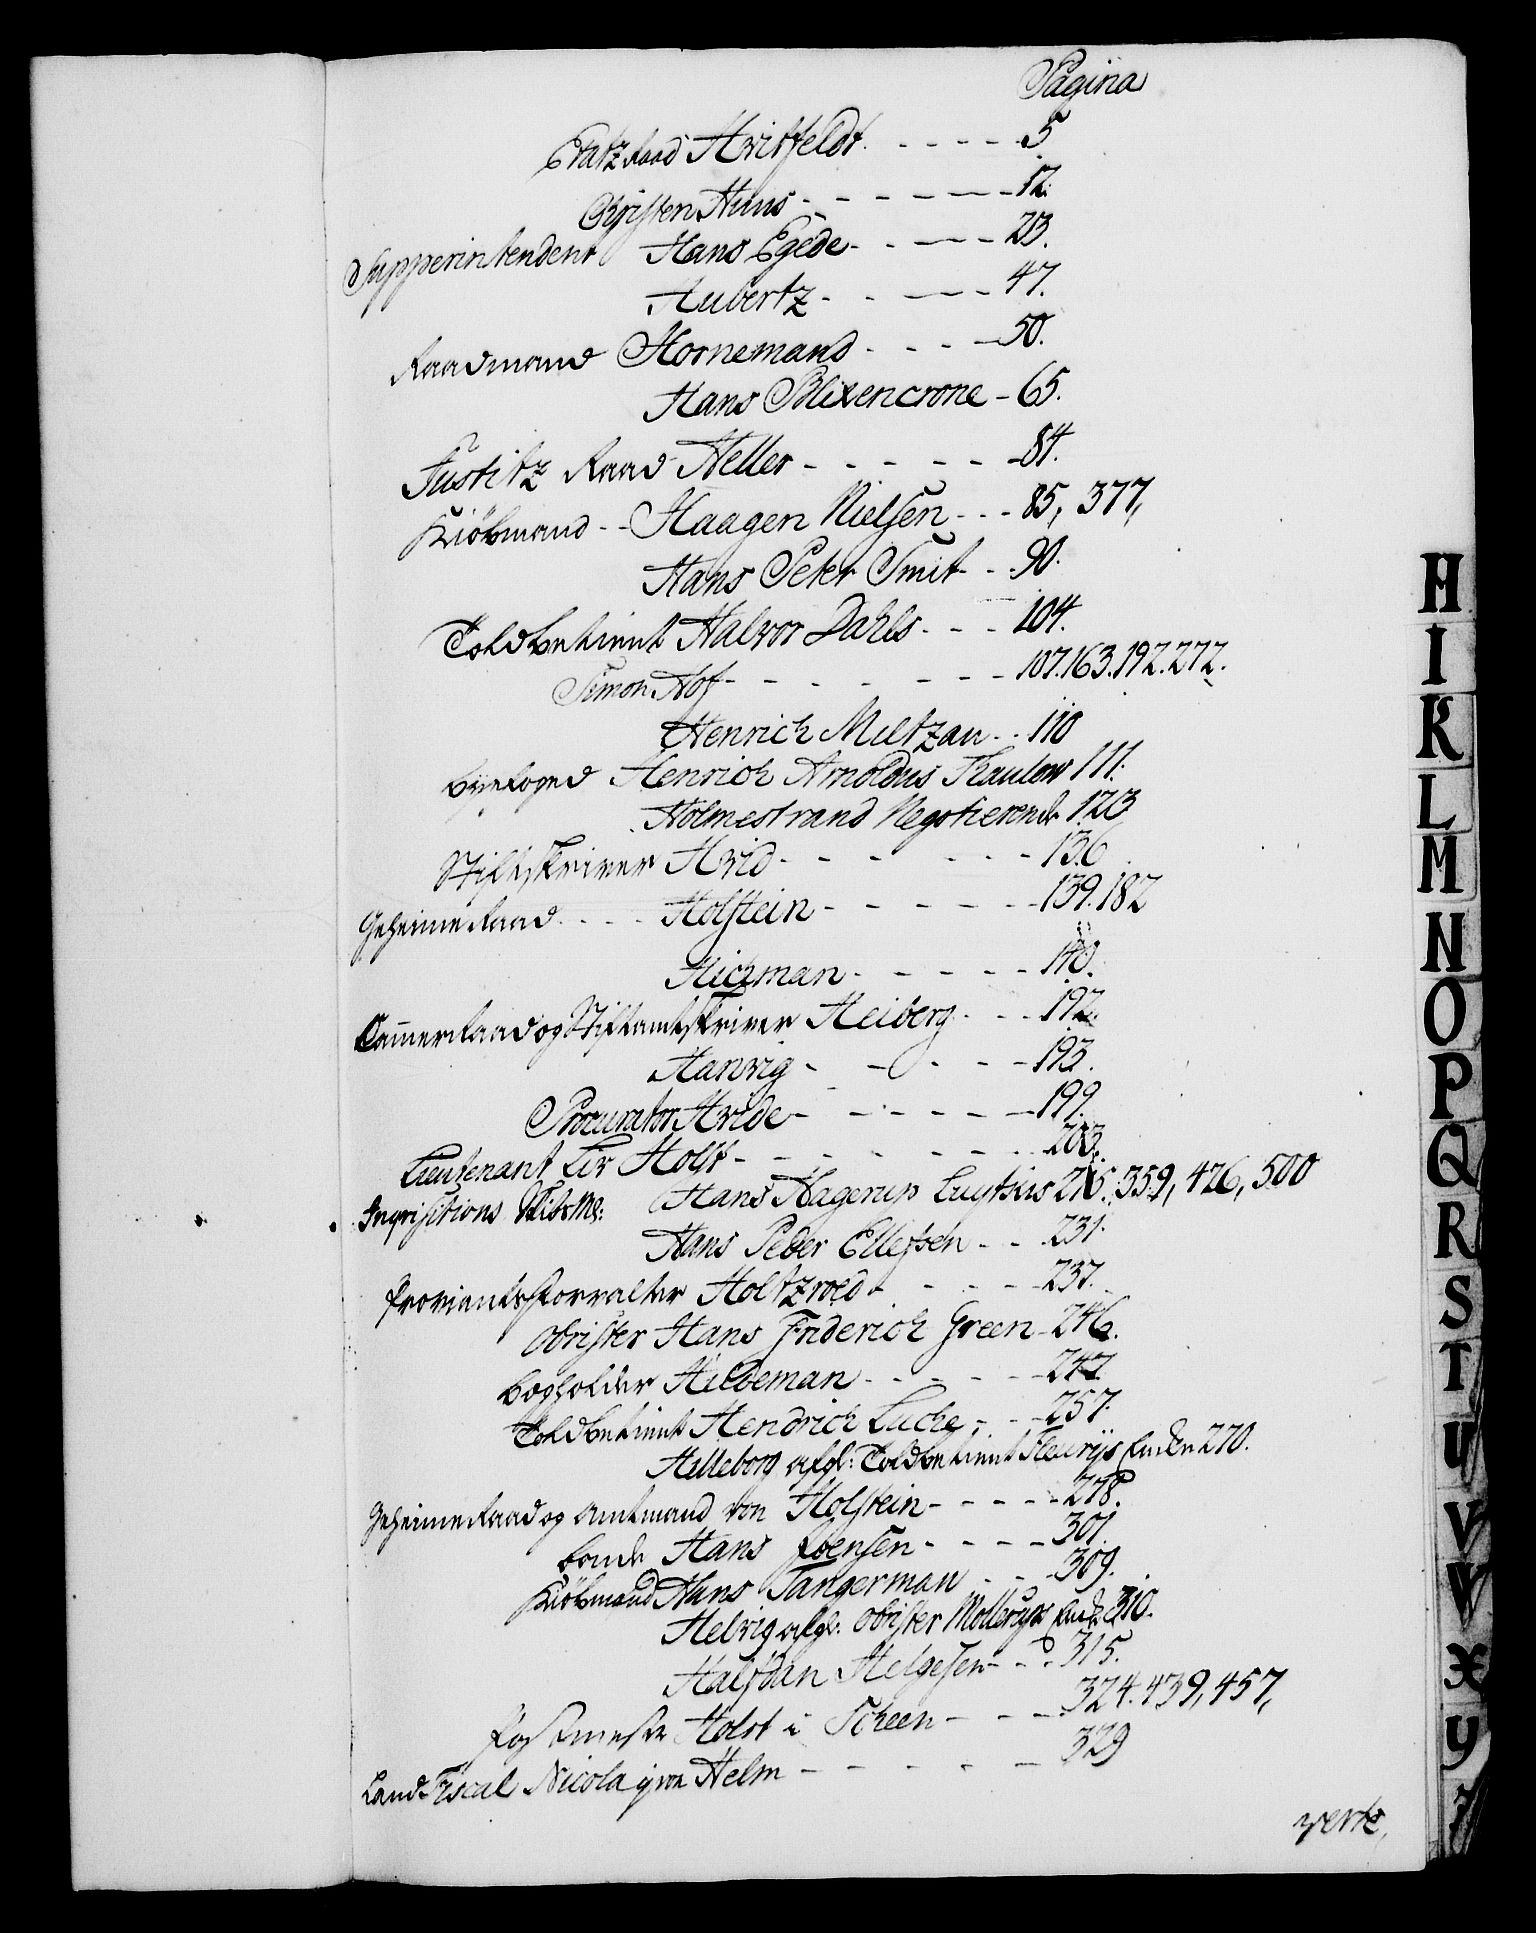 Pagina
Etatz Raad Hvitfeldt - - - - - 5
Christen Huus - - - - - - - 12.
Supperintendent Hans Egede - - - - 23.
Hubertz - - - - 47.
Raadmand Hornemand - - - - 50.
Hans Blixencrone - 65.
Justitz Raad Heller - - - - - - 84.
Kiöbmand - - Haagen Nielsen - - - 85, 377,
Hans Peter Smit - - 90.
Toldbetient Halvor Dahls - - - 104.
Simon Hof - - - - - - - 107. 163. 192. 272.
Henrich Meltzau - - 110
Byefoged Henrich Arnoldus Thaulow 111.
Holmestrand Negotierende 123
Stiftskriver Hvid - - - - - - 136
Geheime Raad - - - - Holstein - - - - - - 139. 182
Hichman - - - - - 140.
Cammer Raad og Stiftamtskriver Heiberg - - - 192.
Hanvig - - - - - 193.
Procurator Hvide - - - - - - 199.
Lieutenant Lir Holst - - - - - - - 203.
Inqvisitions Hans Hagerup Luytkis 216. 359, 426, 500
Hans Peder Ellefsen - - 231.
Proviantsforvalter Holtzroed - - - - 237.
Obrister Hans Friderich Green - 246.
Bogholder Hildeman - - - - - 247
Toldbetient Hendrich Luche - - - 257.
Helleborg afgl: Toldbetient Fleurÿs Encke 270.
Geheime Raad og Amtmand von Holstein - - - - - 278.
Bonde Hans Joensen - - - - - 301
Kiöbmand Hans Tangerman - - - 309.
Helvig afgl: Obrister Möllerups Encke 310.
Halfdan Helgesen - - - 315.
Postmester Holst i Scheen - - - - 324. 439, 457,
Land-Fiscal Nicolaj von Helm - - - - - - 329
verte,
H
I
K
L
M
N
O
P
Q
R
S
T
U
V
W
X
Y
Z